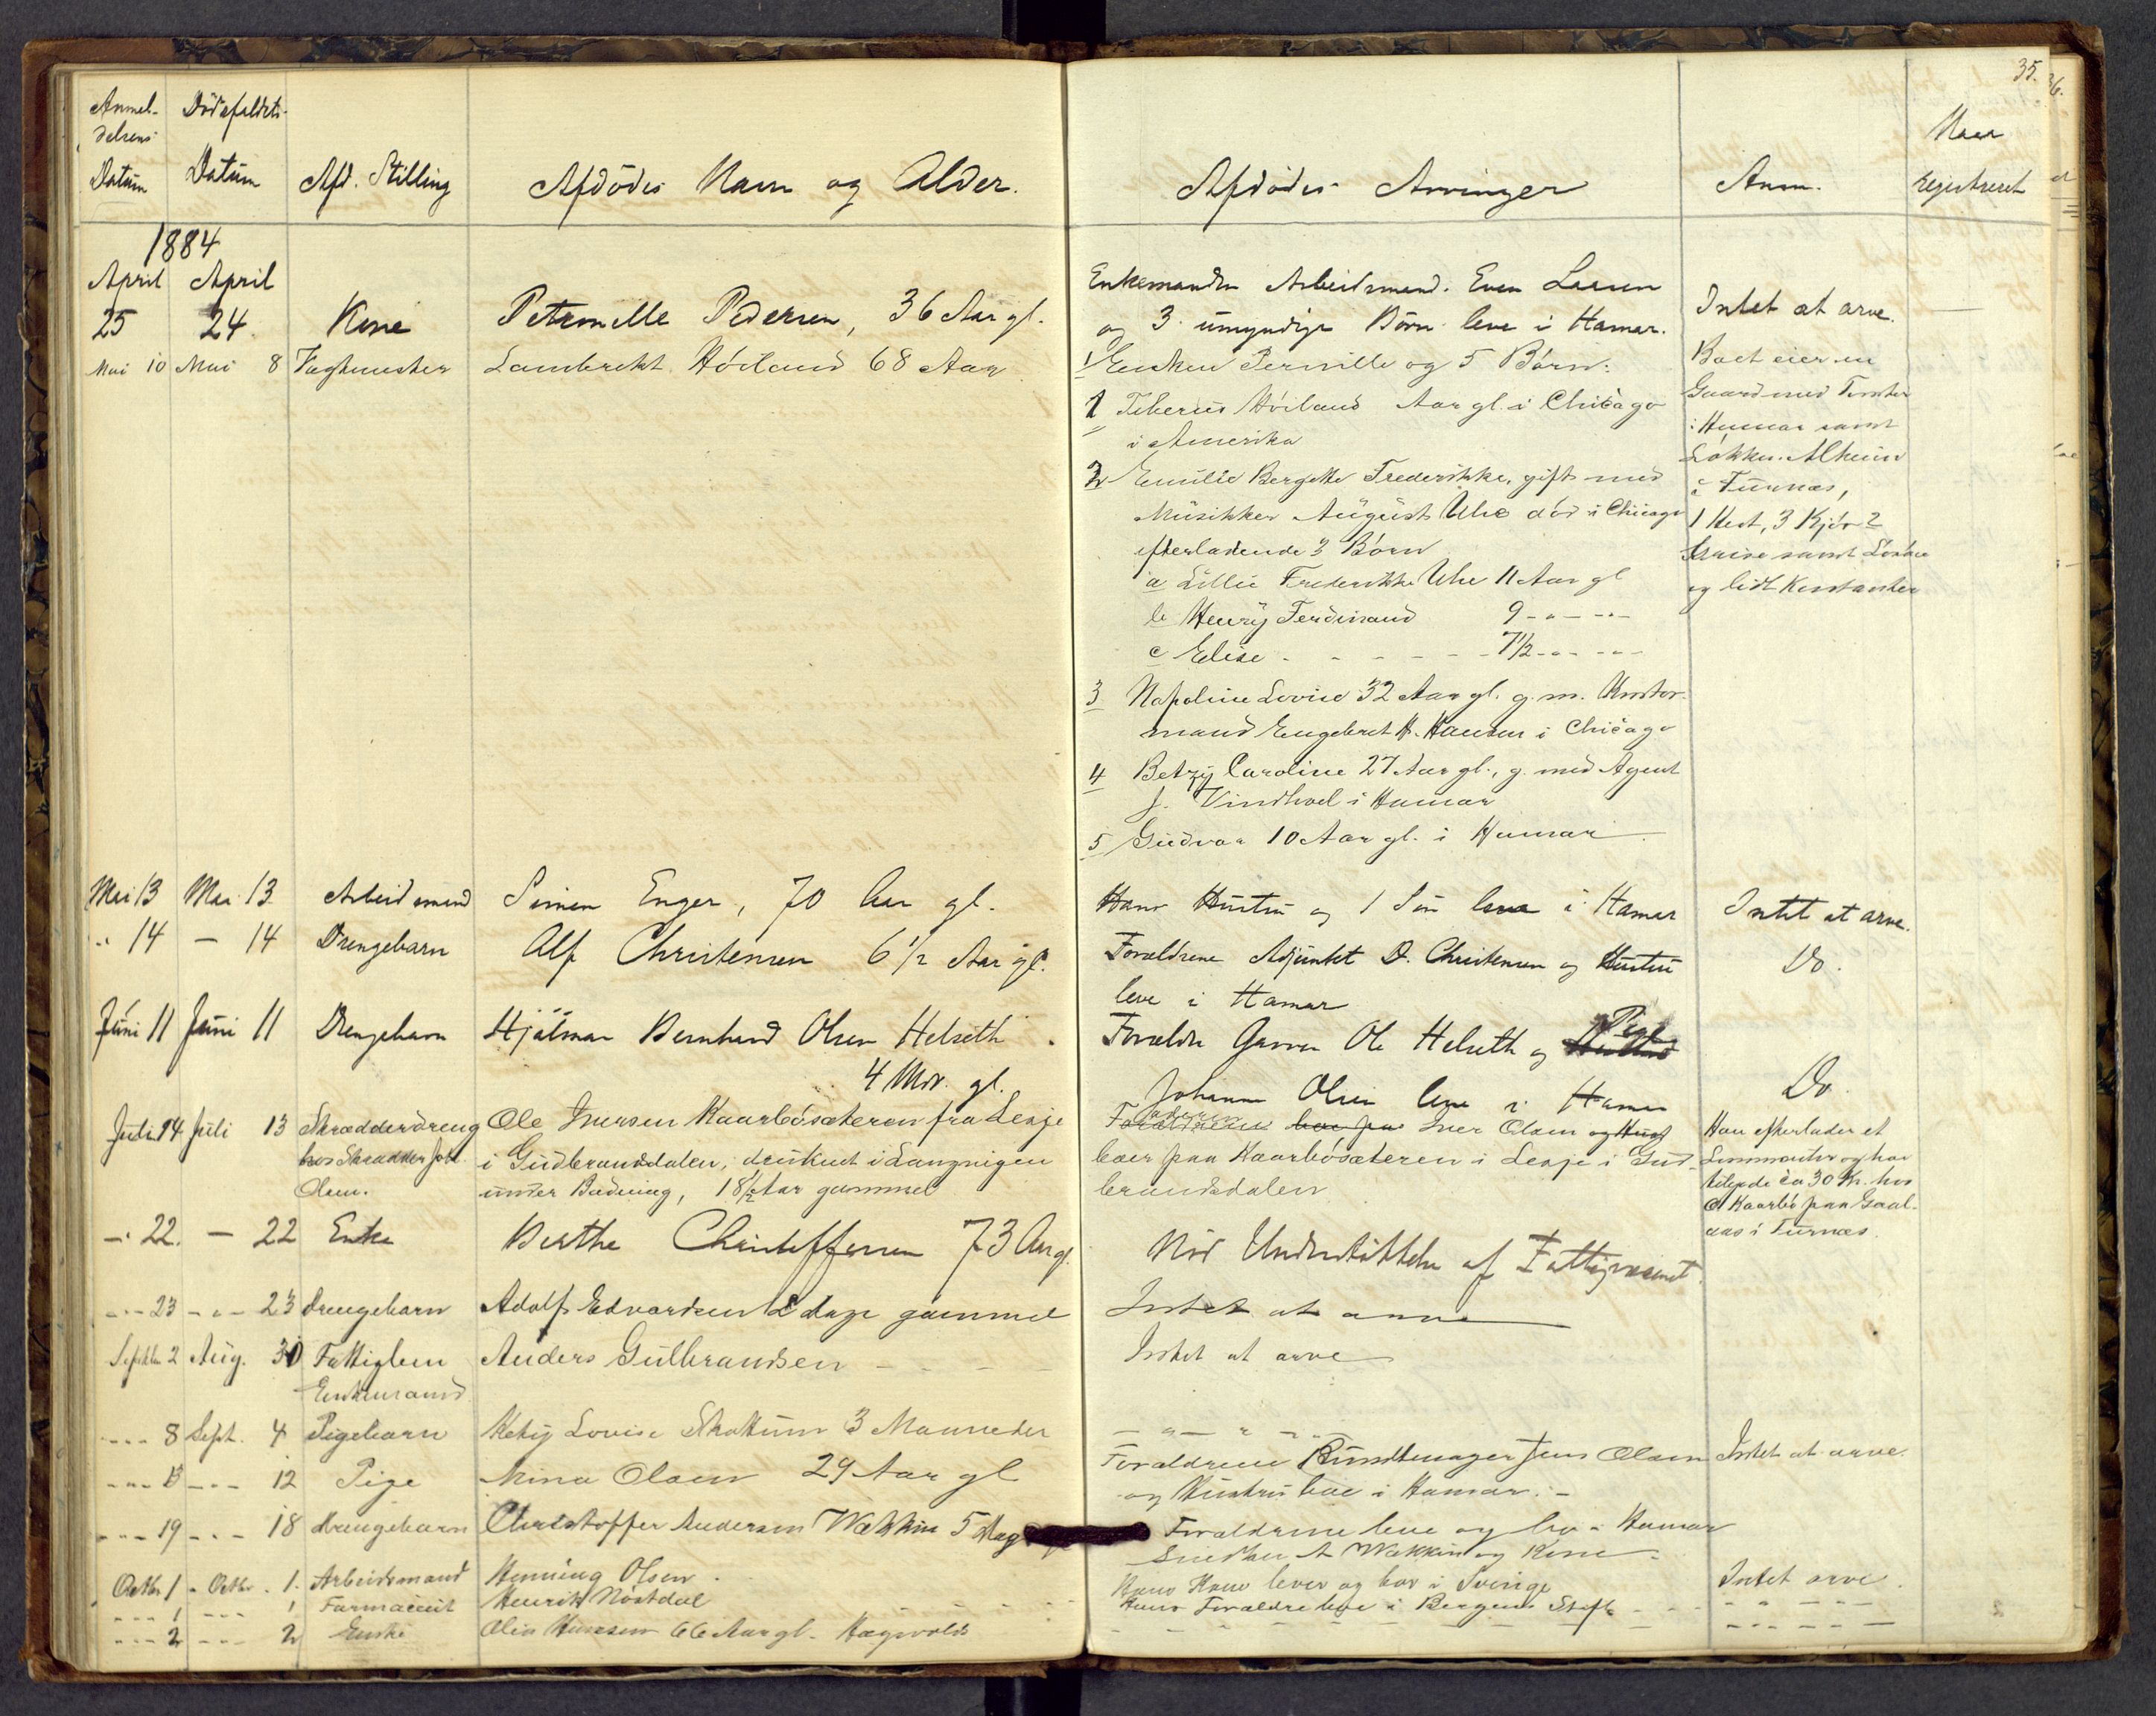 35.
Anmel-
delsens
Datum
Dödsfaldets
Datum
Afd. Stilling
Afdödes Navn og Alder.
Afdödes Arvinger
Anm.
Naar
registreret
1884
April April
25 24. Kone Petronille Pedersen, 36 Aar gl.
Enkemanden Arbeidsmand. Even Larsen
og 3 umyndige Børn leve i Hamar.
Intet at arve.
Mai 10 Mai 8 Lambrekt Höiland 68 Aar
Enken Pernille og 5 Börn:
1 Tiberius Höiland Aar gl. i Chicago
i Amerika
2 Emilie Bergette Frederikke, gift med
Musikker August Uhe död i Chicago
efterladende 3 Börn
a Lillie Frederikke Uhe 11 Aar gl
b Henry Ferdinand 9 - " - - " -
c Elise - - - - - - 7 1/2 - " - - " -
3 Napoline Lovise 32 Aar gl. g. m.
mand Engebret H. Hansen i Chicago
4 Betzy Caroline 27 Aar gl., g. med Agent
J. Vindhol i Hamar
5 Gudvor 10 Aar gl. i Hamar
Boet eier en
Gaard med Tomter
i Hamar samt
Lökken Alheim
i Furnæs,
1 Hest, 3 Kjör 2
Grise samt Lösöre
og lidt
Mai 13 Mai 13 Arbeidsmand Simen Enger, 70 Aar gl.
Hans Hustru og 1 Sön leve i Hamar
Intet at arve.
" 14 — 14 Drengebarn Alf Christensen 6 1/2 Aar gl.
Forældrene Adjunkt D. Christensen og Hustru
leve i Hamar
Do.
Juni 11 Juni 11 Drengebarn Hjalmar Bernhard Olsen Helseth
4 Mdr. gl.
Forældre Garver Ole Helseth og Pige
Johanne Olsen leve i Hamar
Do.
Juli 14 Juli 13 Skrædderdreng Ole Iversen Kaarbösæteren fra Lesje
hos Skrædder Joh. i Gudbrandsdalen, druknet i Langvigen
Olsen. under Badning, 18 1/2 Aar gammel
Forældrene aderen boe paa Iver Olsen og Hust
boer paa Kaarbösæteren i Lesje i Gud-
brandsdalen
Han efterlader et
Lommeuhr og har
tilgode ca 30 Kr. hos
O Kaarbö paa Gaal-
aas i Furnæs.
— " 22. — 22 Enke Berthe Christoffersen 73 Aar gl.
Nöd Understöttelse af Fattigvæsenet.
- " - 23 - " - 23 Drengebarn Adolf Edvardsen 2 dage gammel
Intet at arve
Septbr 2 Aug. 30 Fattiglem Anders Gulbrandsen - - - -
Enkemand
Intet at arve
- - - 8 Sept. 4 Pigebarn Ketty Lovise Skattum 3 Maaneder
— " — " — "
- " - 13 - " - 12 Pige Mina Olsen 24 Aar gl
Forældrene Bundtmager Jens Olsen
og Hustru boe i Hamar. -
Intet at arve.
- " - 19 - " - 18 Drengebarn Christoffer Andersen Wækkin 5 Dag
Forældrene leve og bo i Hamar
Snedker A Wækkin og Kone.
Octbr 1 - Octbr. 1. Arbeidsmand Henning Olsen.
Hans Kone lever og bor i Sverige
Intet arve.
- - - 1 - - - 1 Farmaceut Henrik Nöstdal
Hans Forældre leve i Bergens Stift - - -
- - - 2 - - - 2 Enke Olia Hansen 66 Aar gl. Hægvolds